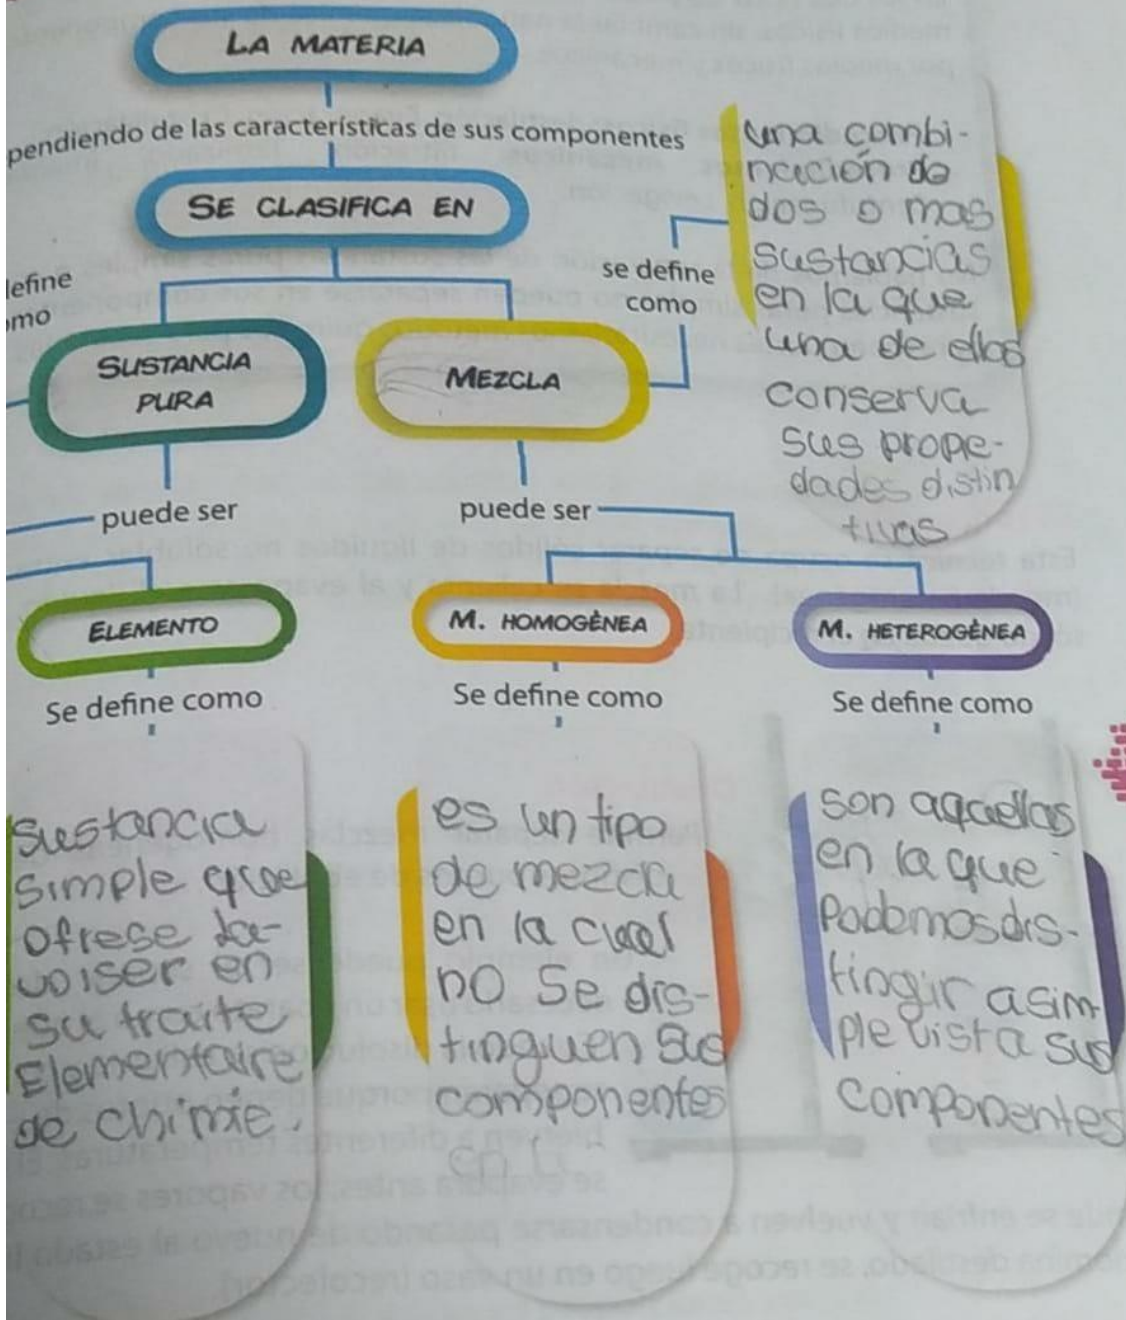 LA MATERIA
pendiendo de las características de sus componentes
SE CLASIFICA EN
define
omo
SUSTANCIA
PURA
MEZCLA
se define
como
una combi-
nación de
dos o mas
sustancias
en la que
una de ellas
conserva
sus propie-
dades distin
tivas
puede ser
puede ser
ELEMENTO
M. HOMOGÈNEA
M. HETEROGÈNEA
Se define como
Se define como
Se define como
Sustancia
Simple que
ofrese La-
voiser en
su traite
Elementaire
de chimie.
es un tipo
de mezcla
en la cual
no Se dis-
tinguen sus
componentes
son aquellas
en la que
Podemos dis-
tingir asim
ple vista sus
componentes